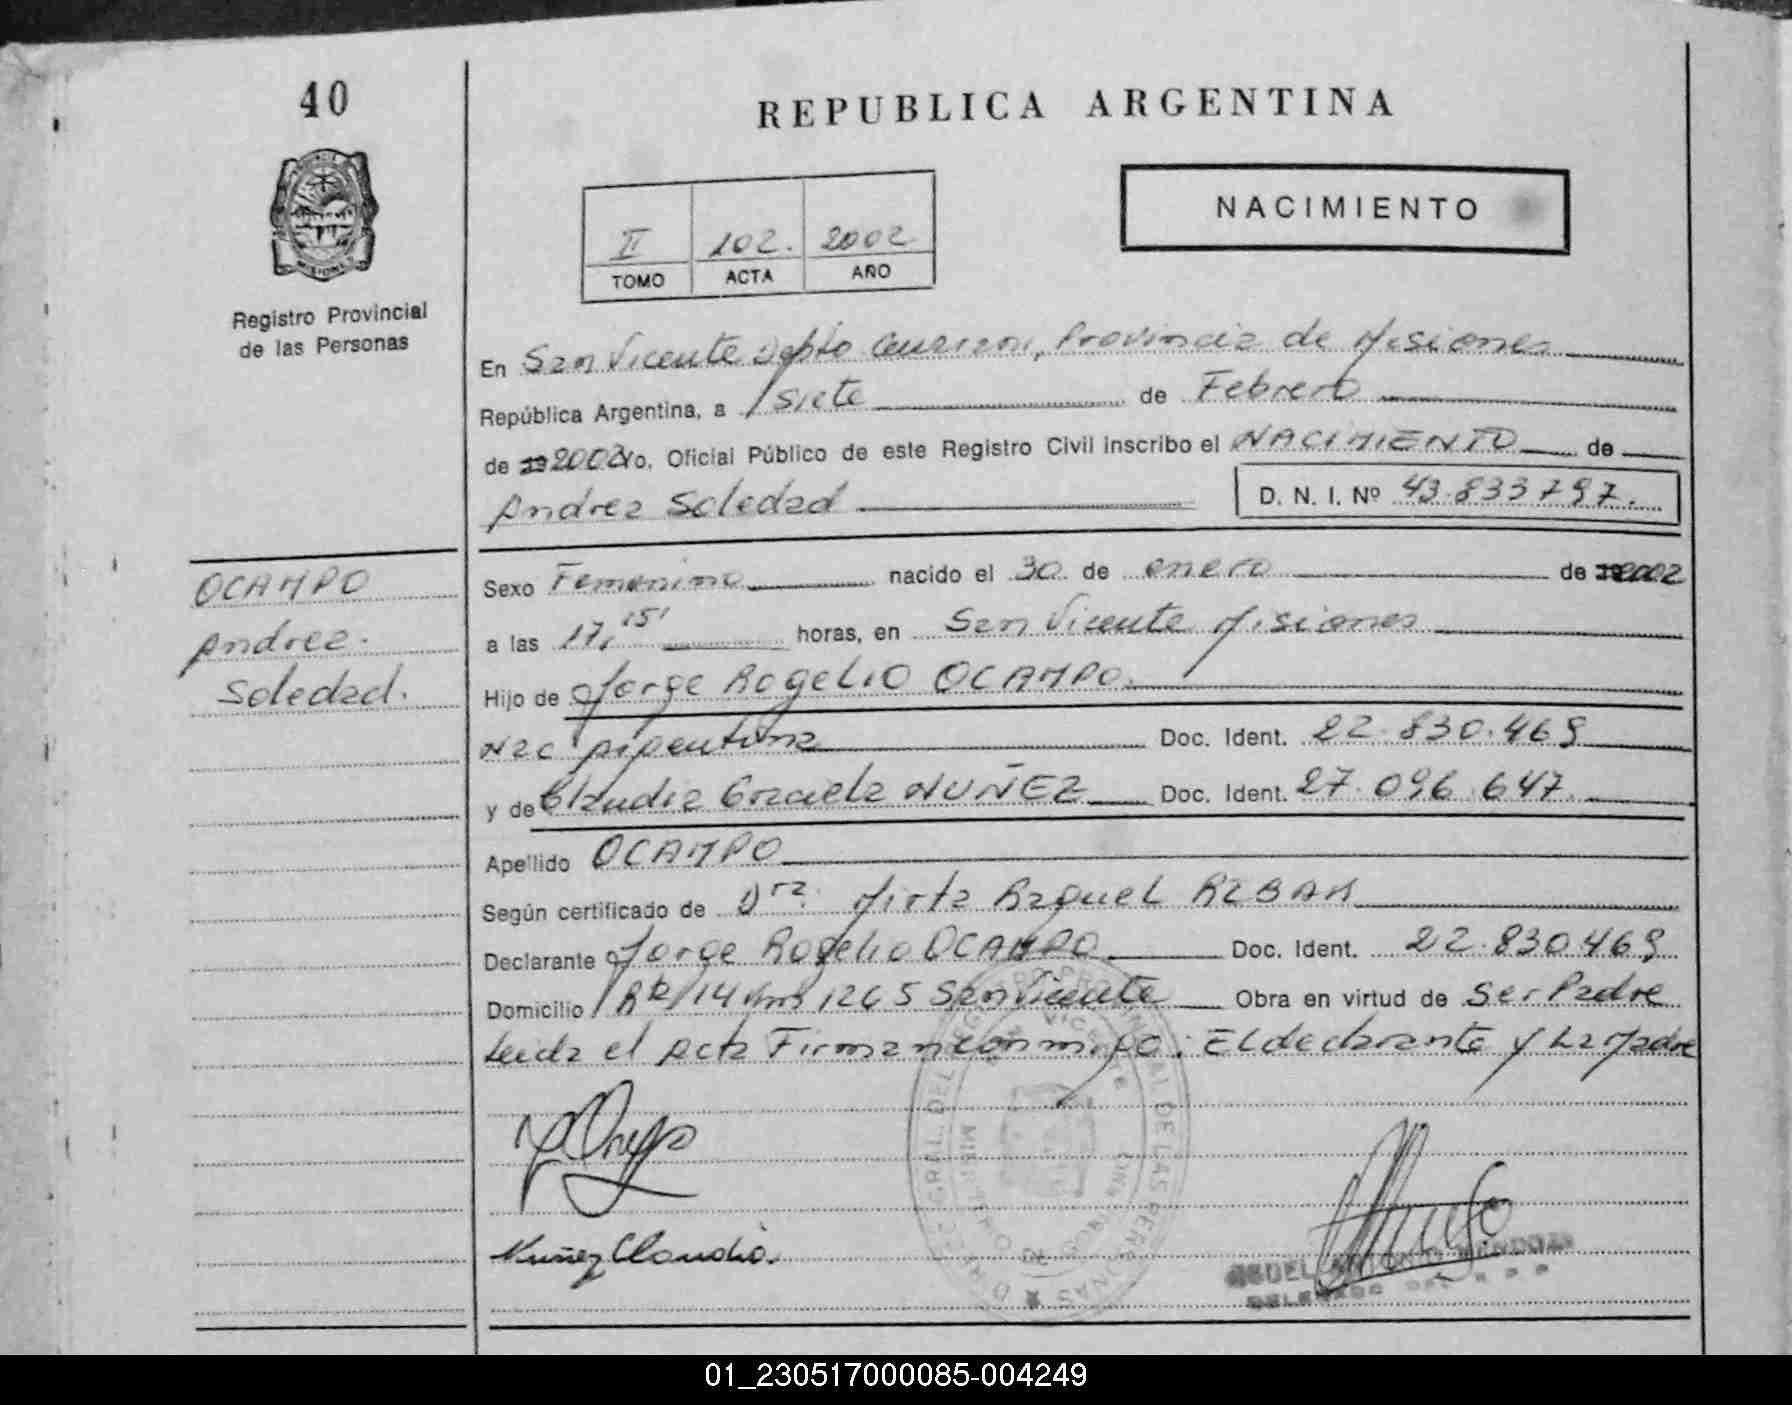 40
REPUBLICA ARGENTINA
NACIMIENTO
II 102. 2002
TOMO ACTA AÑO
MISIONES
Registro Provincial
de las Personas
En San Vicente Depto Provincia de Misiones
República Argentina, a siete de Febrero
de 2002 Yo, Oficial Público de este Registro Civil inscribo el NACIMIENTO de
Andrea Soledad D. N. I. Nº 43.833797.
OCAMPO
Andrea.
Soledad.
Sexo Femenino nacido el 30 de enero de 2002
a las 17,15' horas, en San Vicente Misiones
Hijo de Jorge Rogelio OCAMPO.
Nac Argentina Doc. Ident. 22.830.469
y de Claudia Graciela NUÑEZ Doc. Ident. 27.096.647.
Apellido OCAMPO
Según certificado de Dra. Mirta Raquel
Declarante Jorge Rogelio OCAMPO Doc. Ident. 22.830469
Domicilio 14 Km 1265 San Vicente Obra en virtud de Ser Padre
Leida el Acta Firman conmigo: El declarante y La Madre
Nuñez Claudia.
ANTONIO MENDOZA
01_230517000085-004249